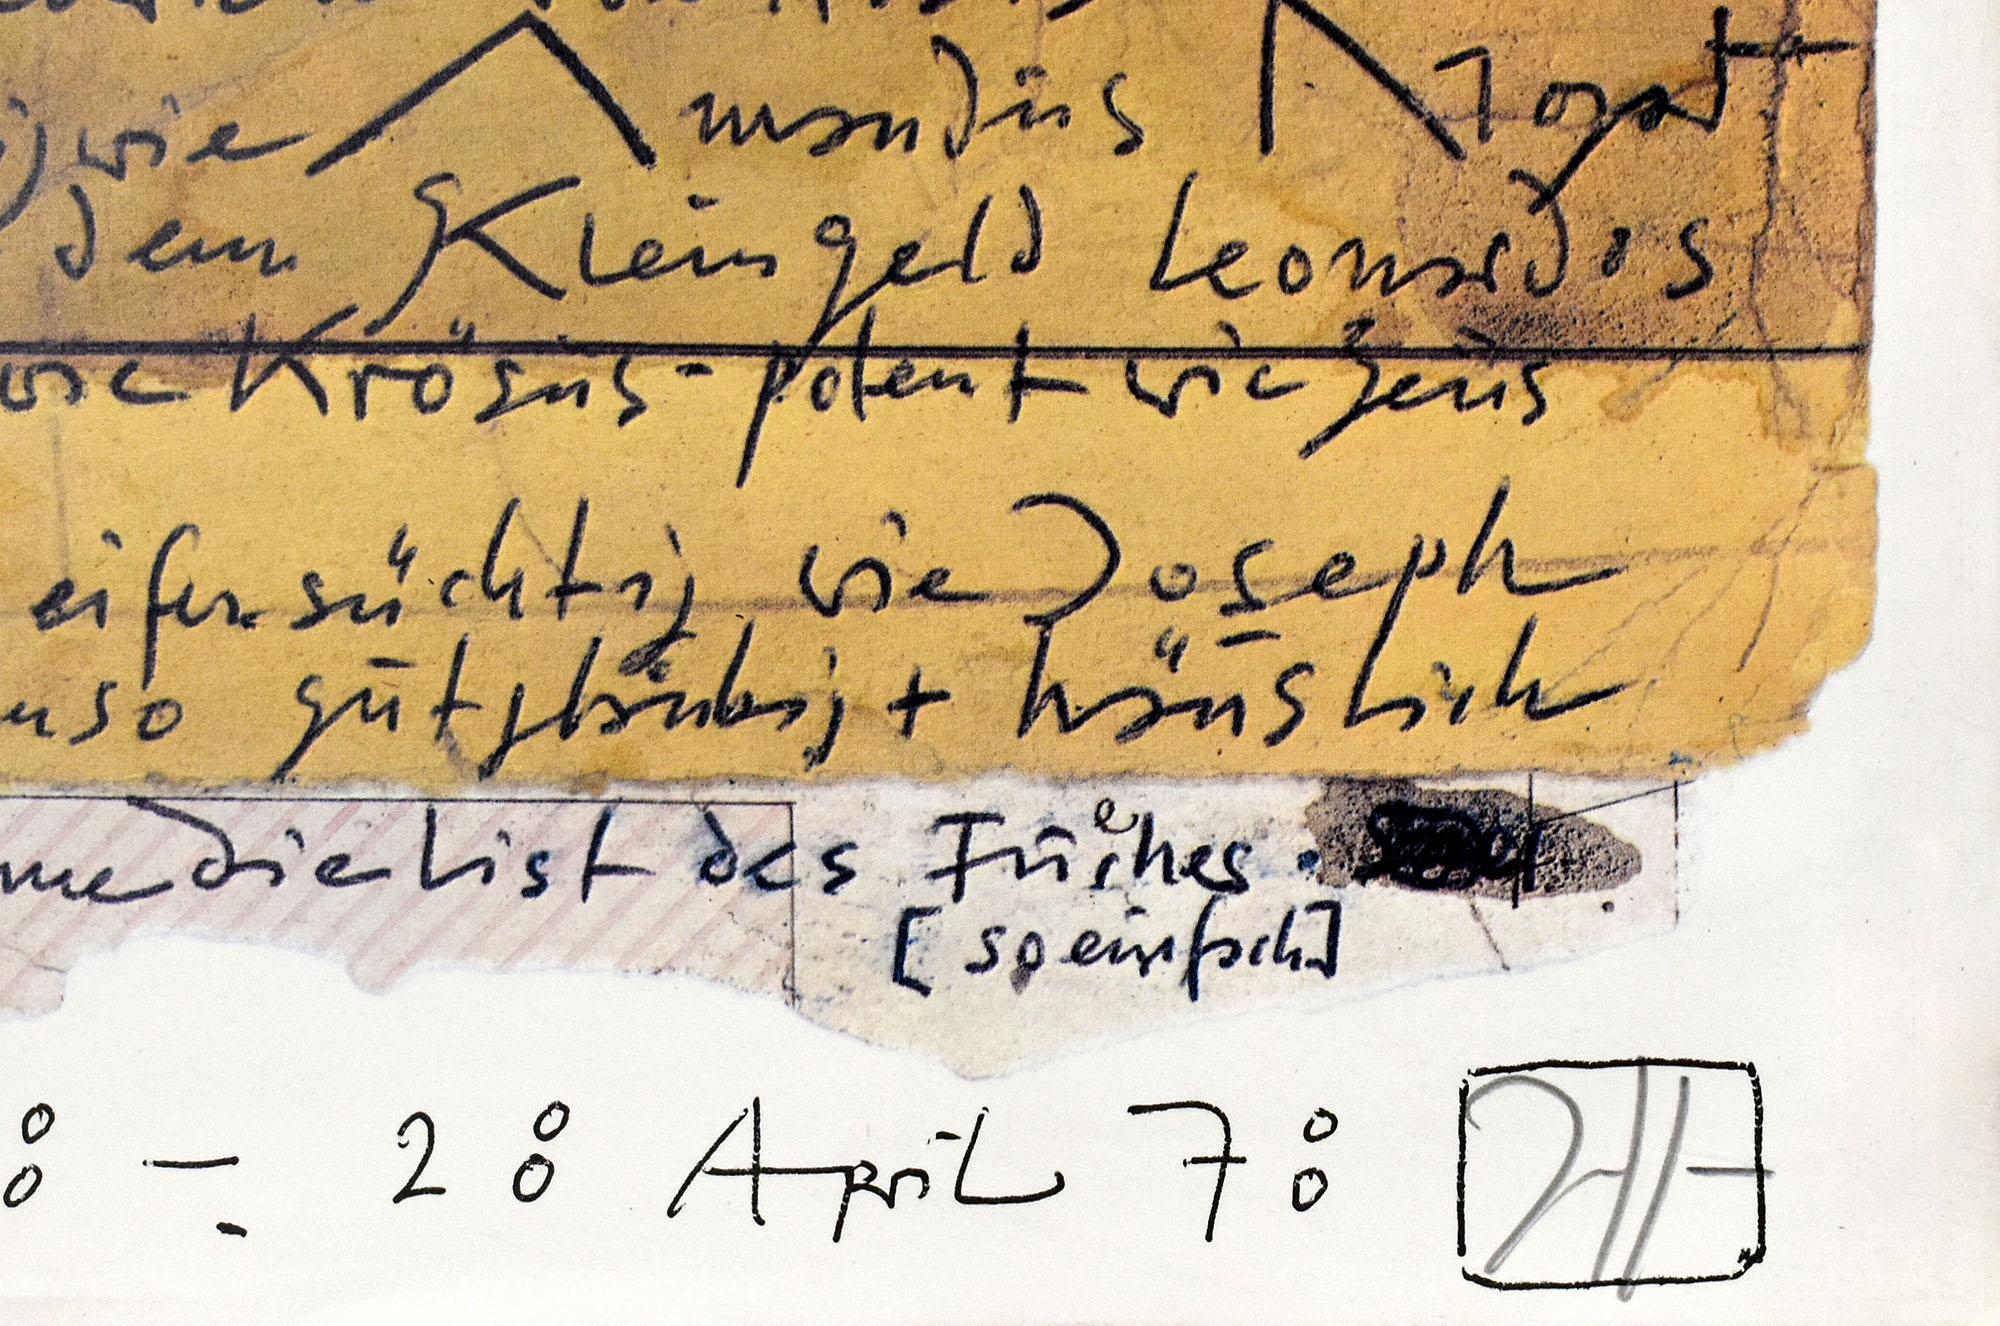 wie Amadeus Mozart
dem Kleingeld Leonardos
wie Krösus - potent wie Zeus
eifersüchtig wie Joseph
so gutgläubig + häuslich
die List des Fuches.
[so einfach]
8 – 28 April 78